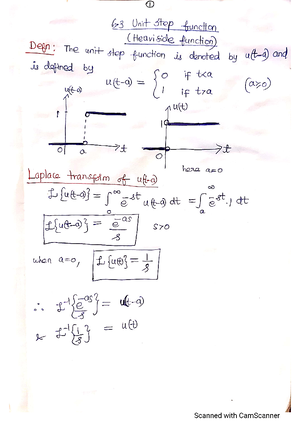 ①
6.3 Unit step function
(Heaviside function)
Defn: The unit step function is denoted by u(t-a) and
is defined by
u(t-a) = { 0 if t<a
1 if t>a (a≥0)
u(t-a)
1
0 a t
u(t)
1
0 t
here a=0
Laplace transform of u(t-a)
L{u(t-a)} = ∫₀^∞ e^-st u(t-a) dt = ∫ₐ^∞ e^-st .1 dt
L{u(t-a)} = e^-as / s s>0
when a=0, L{u(t)} = 1/s
∴ L^-1{e^-as / s} = u(t-a)
& L^-1{1/s} = u(t)
Scanned with CamScanner